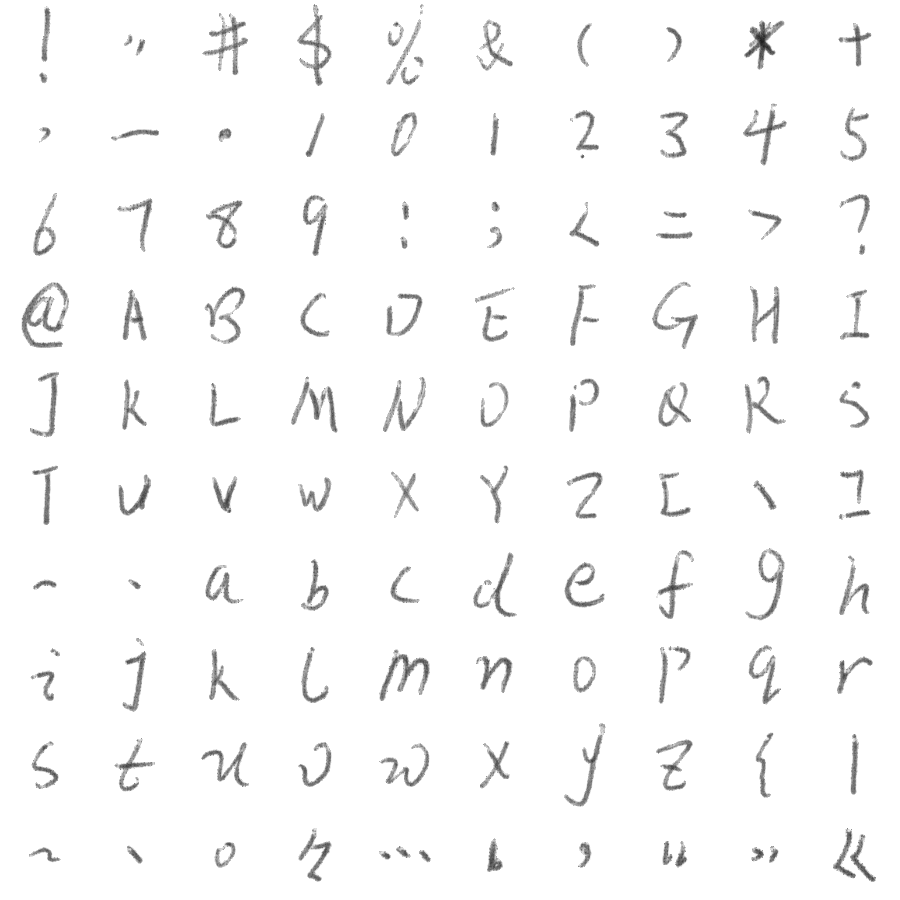 ! " # $ % & ( ) * +
, — · / 0 1 2 3 4 5
6 7 8 9 : ; < = > ?
@ A B C D E F G H I
J K L M N O P Q R S
T U V W X Y Z [ \ ]
^ ` a b c d e f g h
i j k l m n o p q r
s t u v w x y z { |
~ 、 。 … ‘ ’ “ ” 《